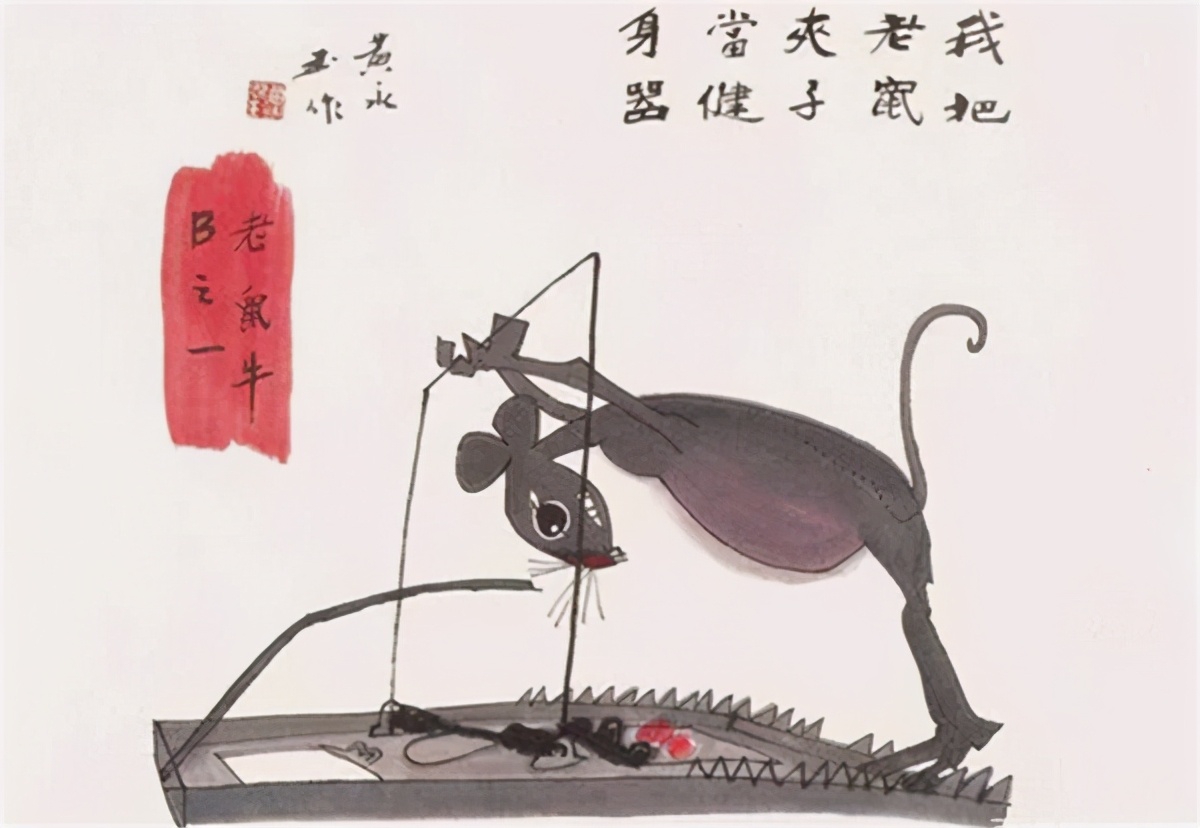 我把
老鼠
夾子
當健
身器
黄永
玉作
老鼠牛
B之一